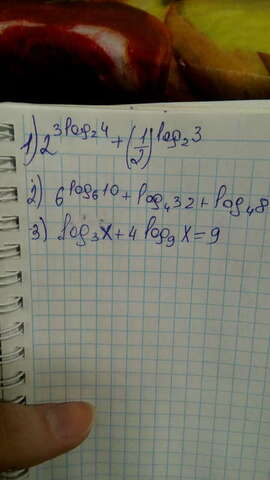 1) 2^{3log₂4} + (1/2)^{log₂3}
2) 6^{log₆10} + log₄32 + log₄8
3) log₃x + 4 log₉x = 9